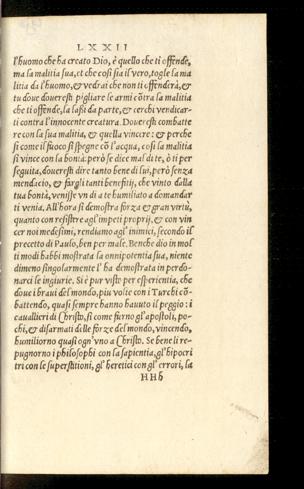 LXXII
l'huomo che ha creato Dio, è quello che ti offende,
ma la malitia sua, et che così sia il vero, togle la ma
litia da l'huomo, & vedrai che non ti offenderà, &
tu doue doueresti pigliare le armi cõtra la malitia
che ti offende, la lassi da parte, & cerchi vendicar-
ti contra l'innocente creatura. Doueresti combatte
re con la sua malitia, & quella vincere: & perche
si come il fuoco si spegne cõ l'acqua, così la malitia
si vince con la bontà: però se dice mal di te, ò ti per
seguita, doueresti dire tanto bene di lui, però senza
mendacio, & fargli tanti benefitij, che vinto dalla
tua bontà, venisse un dì a te humiliato a domandar
ti venia. All'hora si demostra forza & gran virtù,
quanto con resistere agl'impeti proprij, & con vin
cer noi medesimi, rendiamo agl'inimici, secondo il
precetto di Paulo, ben per male. Benche dio in mol
ti modi habbi mostrata la onnipotentia sua, niente
dimeno singolarmente l'ha demostrata in perdo-
narci le ingiurie. Si è pur visto per esperientia, che
doue i braui del mondo, piu volte con i Turchi cõ-
battendo, quasi sempre hanno hauuto il peggio: i
cauallieri di Christo, si come furno gl'apostoli, po-
chi, & disarmati delle forze del mondo, vincendo,
humiliorno quasi ogn'vno a Christo. Se bene li re-
pugnorno i philosophi con la sapientia, gl'hipocri
tri con le superstitioni, gl'heretici con gl'errori, la
HHh